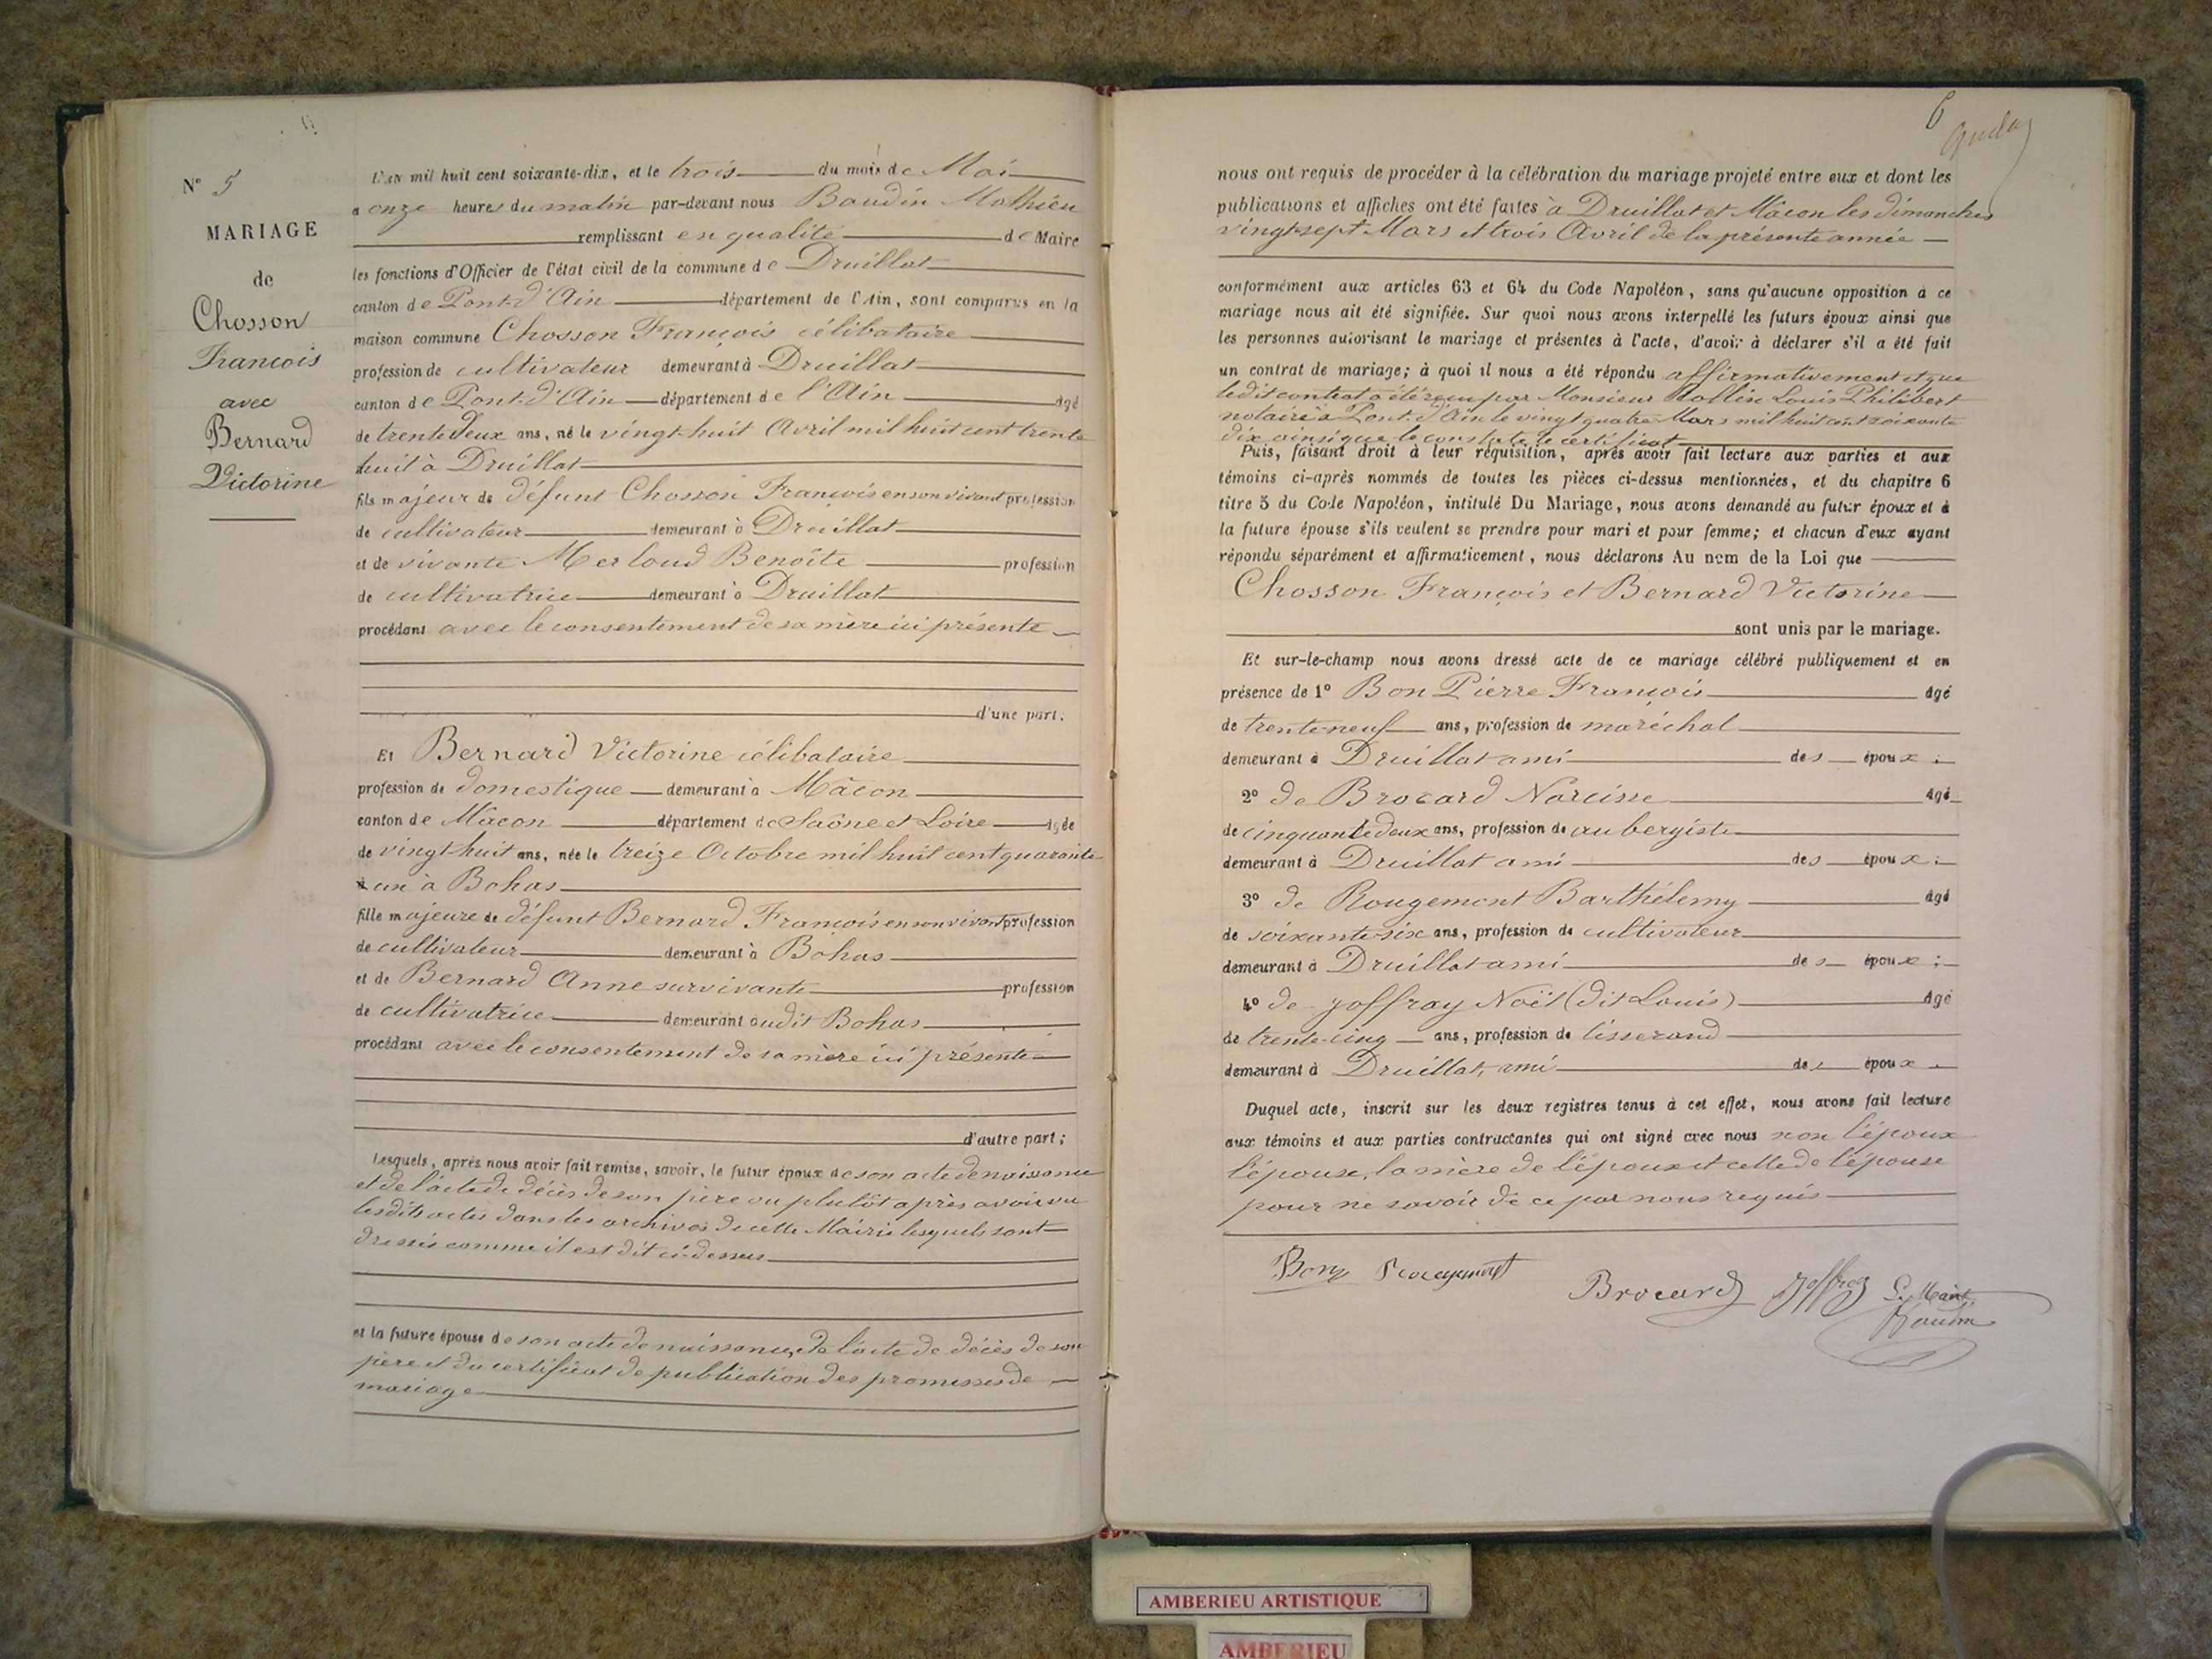 N° 5
MARIAGE
de
Chosson
François
avec
Bernard
Victorine
L'AN mil huit cent soixante-dix, et le trois du mois de Mai
à onze heures du matin par-devant nous Baudin Mathieu
remplissant en qualité de Maire
les fonctions d'Officier de l'état civil de la commune de Druillat
canton de Pont-d'Ain département de l'Ain, sont comparus en la
maison commune Chosson François célibataire
profession de cultivateur demeurant à Druillat
canton de Pont-d'Ain département de l'Ain âgé
de trente deux ans, né le vingt-huit Avril mil huit cent trente
huit à Druillat
fils majeur de défunt Chosson François en son vivant profession
de cultivateur demeurant à Druillat
et de vivante Merloud Benoîte profession
de cultivatrice demeurant à Druillat
procédant avec le consentement de sa mère ici présente
d'une part.
Et Bernard Victorine célibataire
profession de domestique demeurant à Mâcon
canton de Mâcon département de Saône et Loire âgée
de vingt-huit ans, née le treize Octobre mil huit cent quarante
un à Bohas
fille majeure de défunt Bernard François en son vivant profession
de cultivateur demeurant à Bohas
et de Bernard Anne survivante profession
de cultivatrice demeurant audit Bohas
procédant avec le consentement de sa mère ici présente
d'autre part;
Lesquels, après nous avoir fait remise, savoir, le futur époux de son acte de naissance
et de l'acte de décès de son père ou plutôt après avoir vu
lesdits actes dans les archives de cette Mairie lesquels sont
dressés comme il est dit ci-dessus
et la future épouse de son acte de naissance, de l'acte de décès de son
père et du certificat de publication des promesses de
mariage
6
nous ont requis de procéder à la célébration du mariage projeté entre eux et dont les
publications et affiches ont été faites à Druillat et Mâcon les dimanches
vingt-sept Mars et trois Avril de la présente année
conformément aux articles 63 et 64 du Code Napoléon, sans qu'aucune opposition à ce
mariage nous ait été signifiée. Sur quoi nous avons interpellé les futurs époux ainsi que
les personnes autorisant le mariage et présentes à l'acte, d'avoir à déclarer s'il a été fait
un contrat de mariage; à quoi il nous a été répondu affirmativement et que
ledit contrat a été reçu par Monsieur Rollin Louis Philibert
notaire à Pont-d'Ain le vingt quatre Mars mil huit cent soixante
dix ainsi que le constate le certificat
Puis, faisant droit à leur réquisition, après avoir fait lecture aux parties et aux
témoins ci-après nommés de toutes les pièces ci-dessus mentionnées, et du chapitre 6
titre 5 du Code Napoléon, intitulé Du Mariage, nous avons demandé au futur époux et à
la future épouse s'ils veulent se prendre pour mari et pour femme; et chacun d'eux ayant
répondu séparément et affirmativement, nous déclarons Au nom de la Loi que
Chosson François et Bernard Victorine
sont unis par le mariage.
Et sur-le-champ nous avons dressé acte de ce mariage célébré publiquement et en
présence de 1° Bon Pierre François âgé
de trente-neuf ans, profession de maréchal
demeurant à Druillat ami des époux;
2° de Brocard Narcisse âgé
de cinquante deux ans, profession de aubergiste
demeurant à Druillat ami des époux;
3° de Rougemont Barthélemy âgé
de soixante-six ans, profession de cultivateur
demeurant à Druillat ami des époux;
4° de Joffray Noël (dit Louis) âgé
de trente-cinq ans, profession de tisserand
demeurant à Druillat, ami des époux.
Duquel acte, inscrit sur les deux registres tenus à cet effet, nous avons fait lecture
aux témoins et aux parties contractantes qui ont signé avec nous non l'époux
l'épouse, la mère de l'époux et celle de l'épouse
pour ne savoir de ce par nous requis
Bon Rougemont Brocard Joffray Le Maire
Baudin
AMBERIEU ARTISTIQUE
AMBERIEU